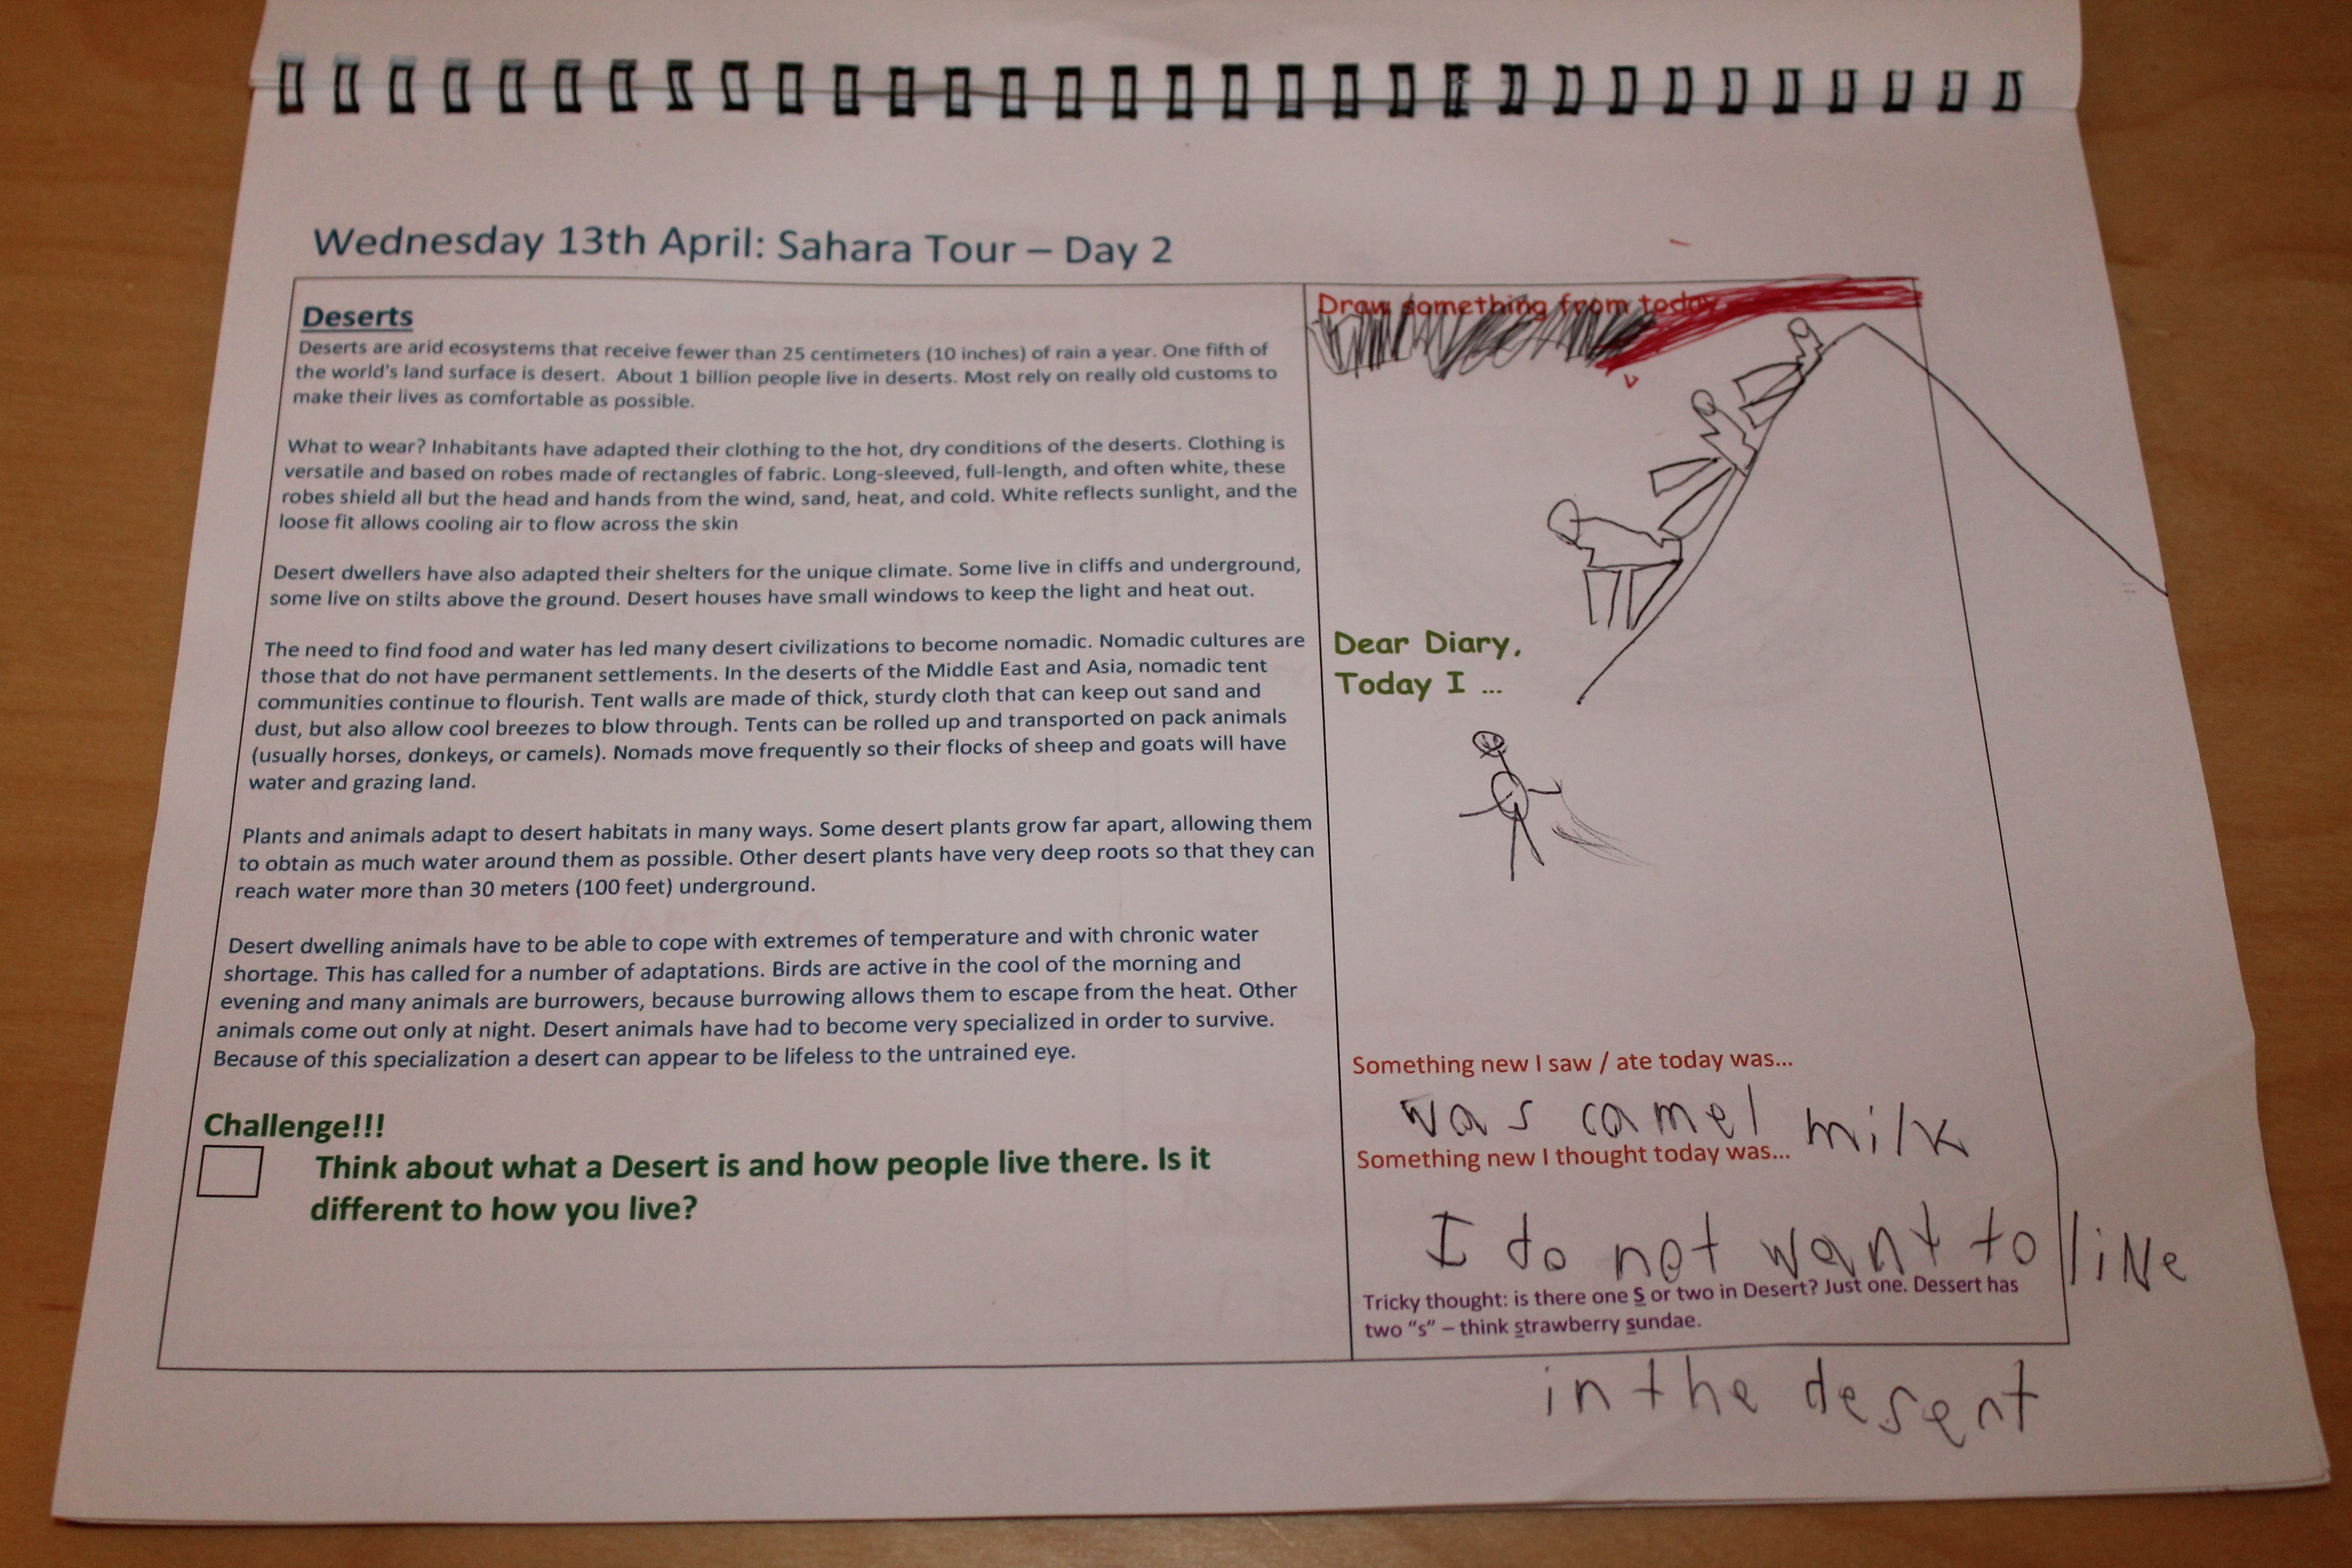 Wednesday 13th April: Sahara Tour – Day 2
Deserts
Deserts are arid ecosystems that receive fewer than 25 centimeters (10 inches) of rain a year. One fifth of
the world's land surface is desert. About 1 billion people live in deserts. Most rely on really old customs to
make their lives as comfortable as possible.
What to wear? Inhabitants have adapted their clothing to the hot, dry conditions of the deserts. Clothing is
versatile and based on robes made of rectangles of fabric. Long-sleeved, full-length, and often white, these
robes shield all but the head and hands from the wind, sand, heat, and cold. White reflects sunlight, and the
loose fit allows cooling air to flow across the skin
Desert dwellers have also adapted their shelters for the unique climate. Some live in cliffs and underground,
some live on stilts above the ground. Desert houses have small windows to keep the light and heat out.
The need to find food and water has led many desert civilizations to become nomadic. Nomadic cultures are
those that do not have permanent settlements. In the deserts of the Middle East and Asia, nomadic tent
communities continue to flourish. Tent walls are made of thick, sturdy cloth that can keep out sand and
dust, but also allow cool breezes to blow through. Tents can be rolled up and transported on pack animals
(usually horses, donkeys, or camels). Nomads move frequently so their flocks of sheep and goats will have
water and grazing land.
Plants and animals adapt to desert habitats in many ways. Some desert plants grow far apart, allowing them
to obtain as much water around them as possible. Other desert plants have very deep roots so that they can
reach water more than 30 meters (100 feet) underground.
Desert dwelling animals have to be able to cope with extremes of temperature and with chronic water
shortage. This has called for a number of adaptations. Birds are active in the cool of the morning and
evening and many animals are burrowers, because burrowing allows them to escape from the heat. Other
animals come out only at night. Desert animals have had to become very specialized in order to survive.
Because of this specialization a desert can appear to be lifeless to the untrained eye.
Challenge!!!
Think about what a Desert is and how people live there. Is it
different to how you live?
Draw something from today
Dear Diary,
Today I ...
Something new I saw / ate today was...
was camel milk
Something new I thought today was...
I do not want to live
Tricky thought: is there one S or two in Desert? Just one. Dessert has
two “s” – think strawberry sundae.
in the desent